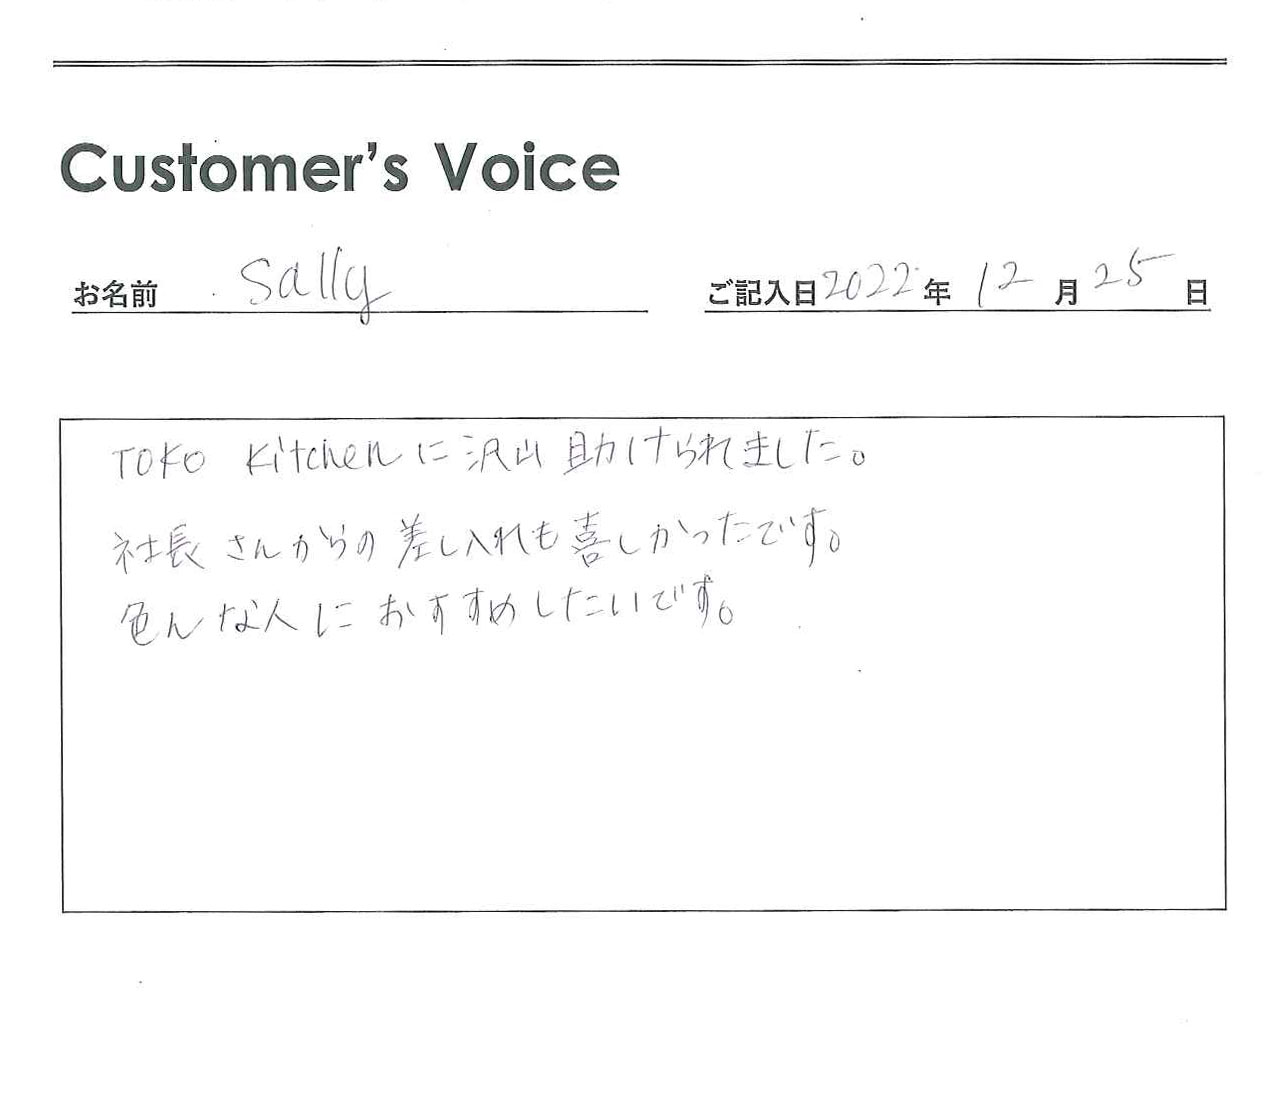 Customer's Voice
お名前 Sally ご記入日2022年 12月25日
TOKO Kitchenに沢山助けられました。
社長さんからの差し入れも喜しかったです。
色んな人におすすめしたいです。